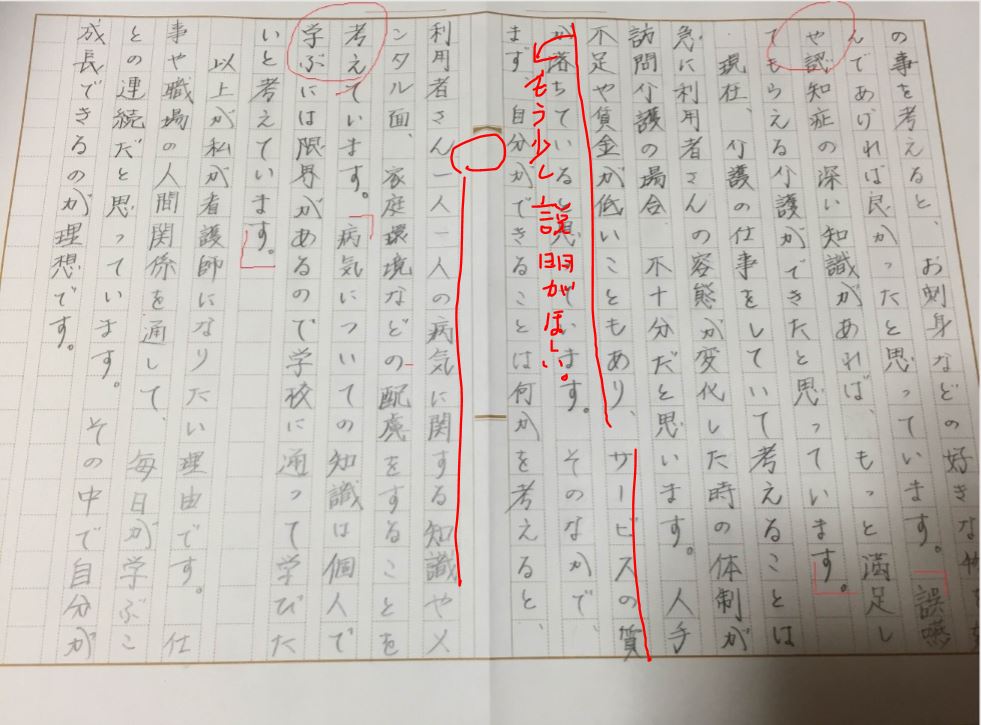 の事を考えると、お刺身などの好きな物を
んであげれば良かったと思っています。誤嚥
や認知症の深い知識があれば、もっと満足し
てもらえる介護ができたと思っています。
現在、介護の仕事をしていて考えることは
急に利用者さんの容態が変化した時の体制が
訪問介護の場合、不十分だと思います。人手
不足や賃金が低いこともあり、サービスの質
が落ちていると思っています。そのなかで、
もう少し説明がほしい。
ます、自分ができることは何かを考えると、
利用者さん一人一人の病気に関する知識やメ
ンタル面、家庭環境などの配慮をすることを
考えています。病気についての知識は個人で
学ぶには限界があるので学校に通って学びた
いと考えています。
以上が私が看護師になりたい理由です。仕
事や職場の人間関係を通して、毎日が学ぶこ
との連続だと思っています。その中で自分が
成長できるのが理想です。